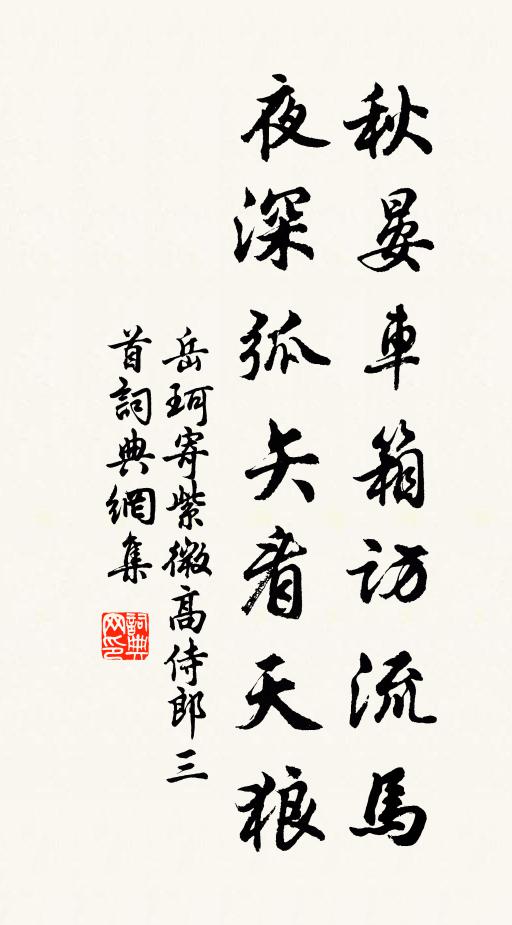 秋晏車箱訪流馬
夜深弧矢看天狼
岳珂寄紫微高侍郎三
首詞典網集
詞典
网印